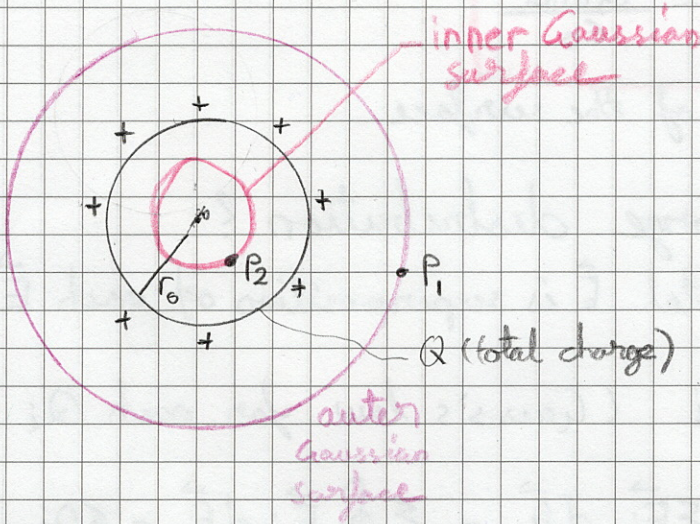 inner Gaussian
surface
+
+
+
+
+
o
P2
P1
r0
+
+
+
Q (total charge)
outer
Gaussian
surface